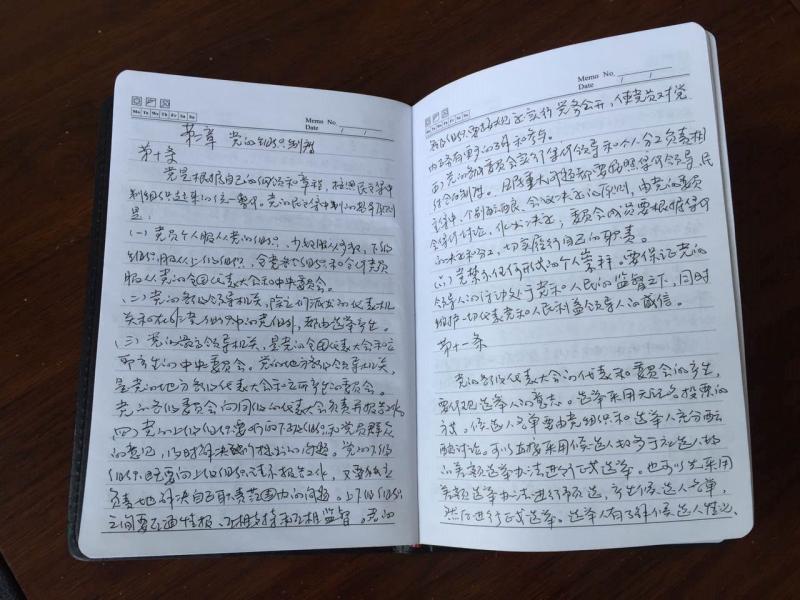 Mo Tu We Th Fr Sa Su
Memo No.
Date / /
第二章 党的组织制度
第十条
党是根据自己的纲领和章程,按照民主集中
制组织起来的统一整体。党的民主集中制的基本原则
是:
(一)党员个人服从党的组织,少数服从多数,下级
组织服从上级组织,全党各个组织和全体党员
服从党的全国代表大会和中央委员会。
(二)党的各级领导机关,除它们派出的代表机
关和在非党组织中的党组外,都由选举产生。
(三)党的最高领导机关,是党的全国代表大会和它
所产生的中央委员会。党的地方各级领导机关,
是党的地方各级代表大会和它所产生的委员会。
党的各级委员会向同级的代表大会负责并报告工作。
(四)党的上级组织要听下级组织和党员群众
的意见,及时解决他们提出的问题。党的下级
组织既要向上级组织请示报告工作,又要独立
负责地解决自己职责范围内的问题。上下级组织
之间要互通情报、互相支持和互相监督。党的
Mo Tu We Th Fr Sa Su
Memo No.
Date / /
各级组织要按规定实行党务公开,使党员对党
内事务有更多的了解和参与。
(五)党的各级委员会实行集体领导和个人分工负责相
结合的制度。凡属重大问题都要按照集体领导、民
主集中、个别酝酿、会议决定的原则,由党的委员
会集体讨论,作出决定;委员会成员要根据集体
的决定和分工,切实履行自己的职责。
(六)党禁止任何形式的个人崇拜。要保证党的
领导人的活动处于党和人民的监督之下,同时
维护一切代表党和人民利益领导人的威信。
第十一条
党的各级代表大会的代表和委员会的产生,
要体现选举人的意志。选举采用无记名投票的
方式。候选人名单要由党组织和选举人充分酝
酿讨论。可以直接采用候选人数多于应选人数
的差额选举办法进行正式选举。也可以先采用
差额选举办法进行预选,产生候选人名单,
然后进行正式选举。选举人有了解候选人情况、